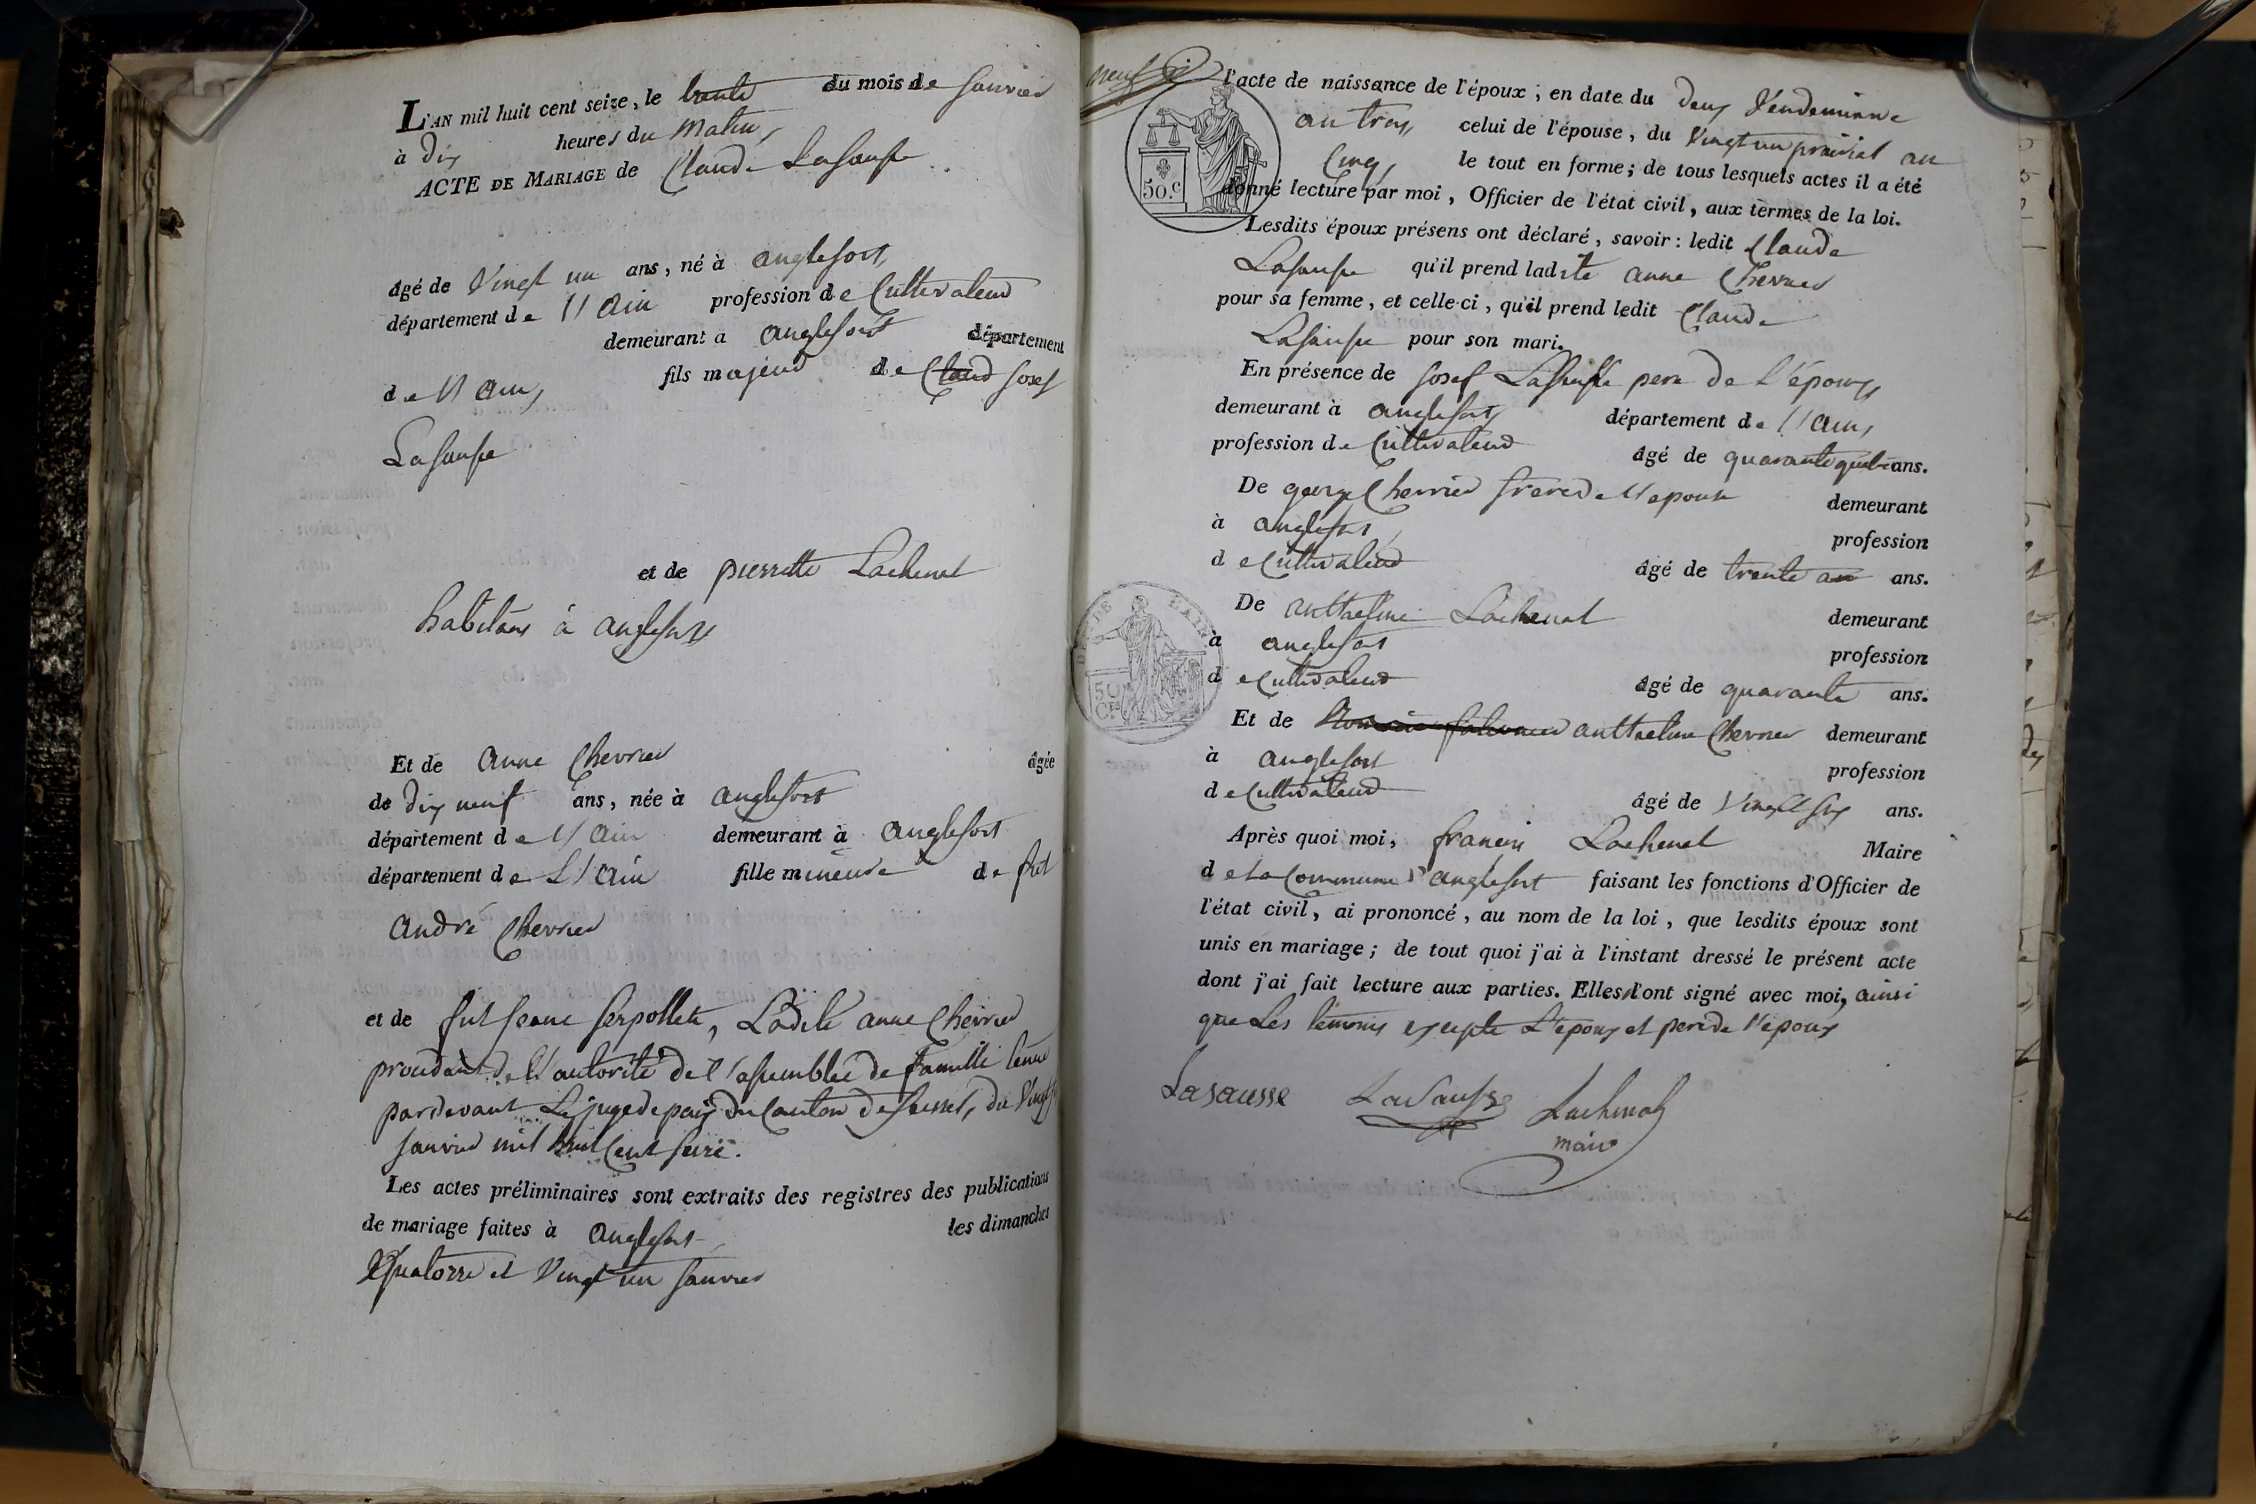 L'AN mil huit cent seize, le trente du mois de Janvier
à dix heures du matin,
ACTE DE MARIAGE de Claude Lasausse
âgé de vingt un ans, né à anglefort,
département de l'ain profession de Cultivateur
demeurant à anglefort département
de l'ain, fils majeur de Claud Josef
Lasausse
et de pierrette Lachenal
habitans à anglefort
Et de anne Chevrier âgée
de dix neuf ans, née à anglefort
département de l'ain demeurant à anglefort
département de L'ain fille mineure de fut
andré Chevrier
et de fut Jeane Serpollet, Ladite anne Chevrier
procédant de l'autorité de l'assemblée de famille tenue
pardevant Le juge de paix du Canton de Seissel, du Vingt
Janvier mil huit Cent seize.
Les actes préliminaires sont extraits des registres des publications
de mariage faites à anglefort les dimanches
Quatorze et Vingt un Janvier
neuf
l'acte de naissance de l'époux, en date du deux Vendemiaire
an trois, celui de l'épouse, du Vingt un prairial an
Cinq, le tout en forme; de tous lesquels actes il a été
donné lecture par moi, Officier de l'état civil, aux termes de la loi.
50.c
Lesdits époux présens ont déclaré, savoir: ledit Claude
Lasausse qu'il prend ladite anne Chevrier
pour sa femme, et celle-ci, qu'il prend ledit Claude
Lasausse pour son mari.
En présence de Josef Lasausse pere de L'époux,
demeurant à anglefort département de l'ain,
profession de Cultivateur âgé de quarante ans.
De george Chevrier frere de l'epouse demeurant
à anglefort, profession
de Cultivateur âgé de trente an ans.
De antthelme Lachenal demeurant
à anglefort profession
de Cultivateur âgé de quarante ans.
50
Ces
Et de antthelme Chevrier demeurant
à anglefort profession
de Cultivateur âgé de Vingt six ans.
Après quoi moi, francois Lachenal Maire
de La Commune d'anglefort faisant les fonctions d'Officier de
l'état civil, ai prononcé, au nom de la loi, que lesdits époux sont
unis en mariage; de tout quoi j'ai à l'instant dressé le présent acte
dont j'ai fait lecture aux parties. Elles l'ont signé avec moi, ainsi
que Les témoins excepté L'epoux et pere de l'epoux
Lasausse Lasausse Lachenal
maire